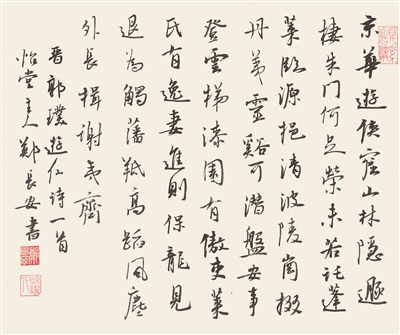 京華遊俠窟山林隱遯
棲朱門何足榮未若託蓬
萊臨源挹清波陵崗掇
丹荑靈谿可潛盤安事
登雲梯漆園有傲吏萊
氏有逸妻進則保龍見
退為觸藩羝高蹈風塵
外長揖謝夷齊
晋郭璞遊仙詩一首
怡堂主人鄭長安書